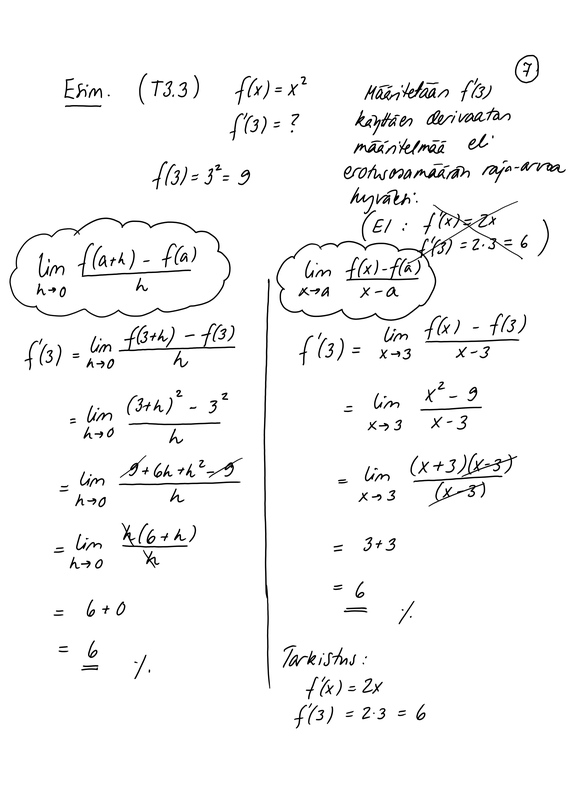 7
Esim. (T3.3) f(x) = x²
f'(3) = ?
f(3) = 3² = 9
Määritetään f'(3)
käyttäen derivaatan
määritelmää eli
erotusosamäärän raja-arvoa
hyväksi.
(EI : f'(x) = 2x
f'(3) = 2·3 = 6)
lim h→0 (f(a+h) - f(a))/h
f'(3) = lim h→0 (f(3+h) - f(3))/h
= lim h→0 ((3+h)² - 3²)/h
= lim h→0 (9 + 6h + h² - 9)/h
= lim h→0 h(6+h)/h
= 6 + 0
= 6 ∕.
lim x→a (f(x) - f(a))/(x - a)
f'(3) = lim x→3 (f(x) - f(3))/(x - 3)
= lim x→3 (x² - 9)/(x - 3)
= lim x→3 (x+3)(x-3)/(x-3)
= 3+3
= 6 ∕.
Tarkistus:
f'(x) = 2x
f'(3) = 2·3 = 6